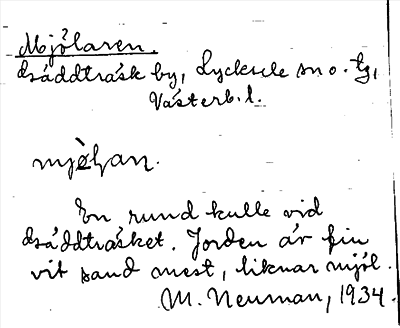 Mjölaren.
Dsäddträsk by, Lycksele sn o. tg,
Västerb. l.
mjø̀lan.
En rund kulle vid
dsäddträsket. Jorden är fin
vit sand mest, liknar mjöl.
M. Neuman, 1934.